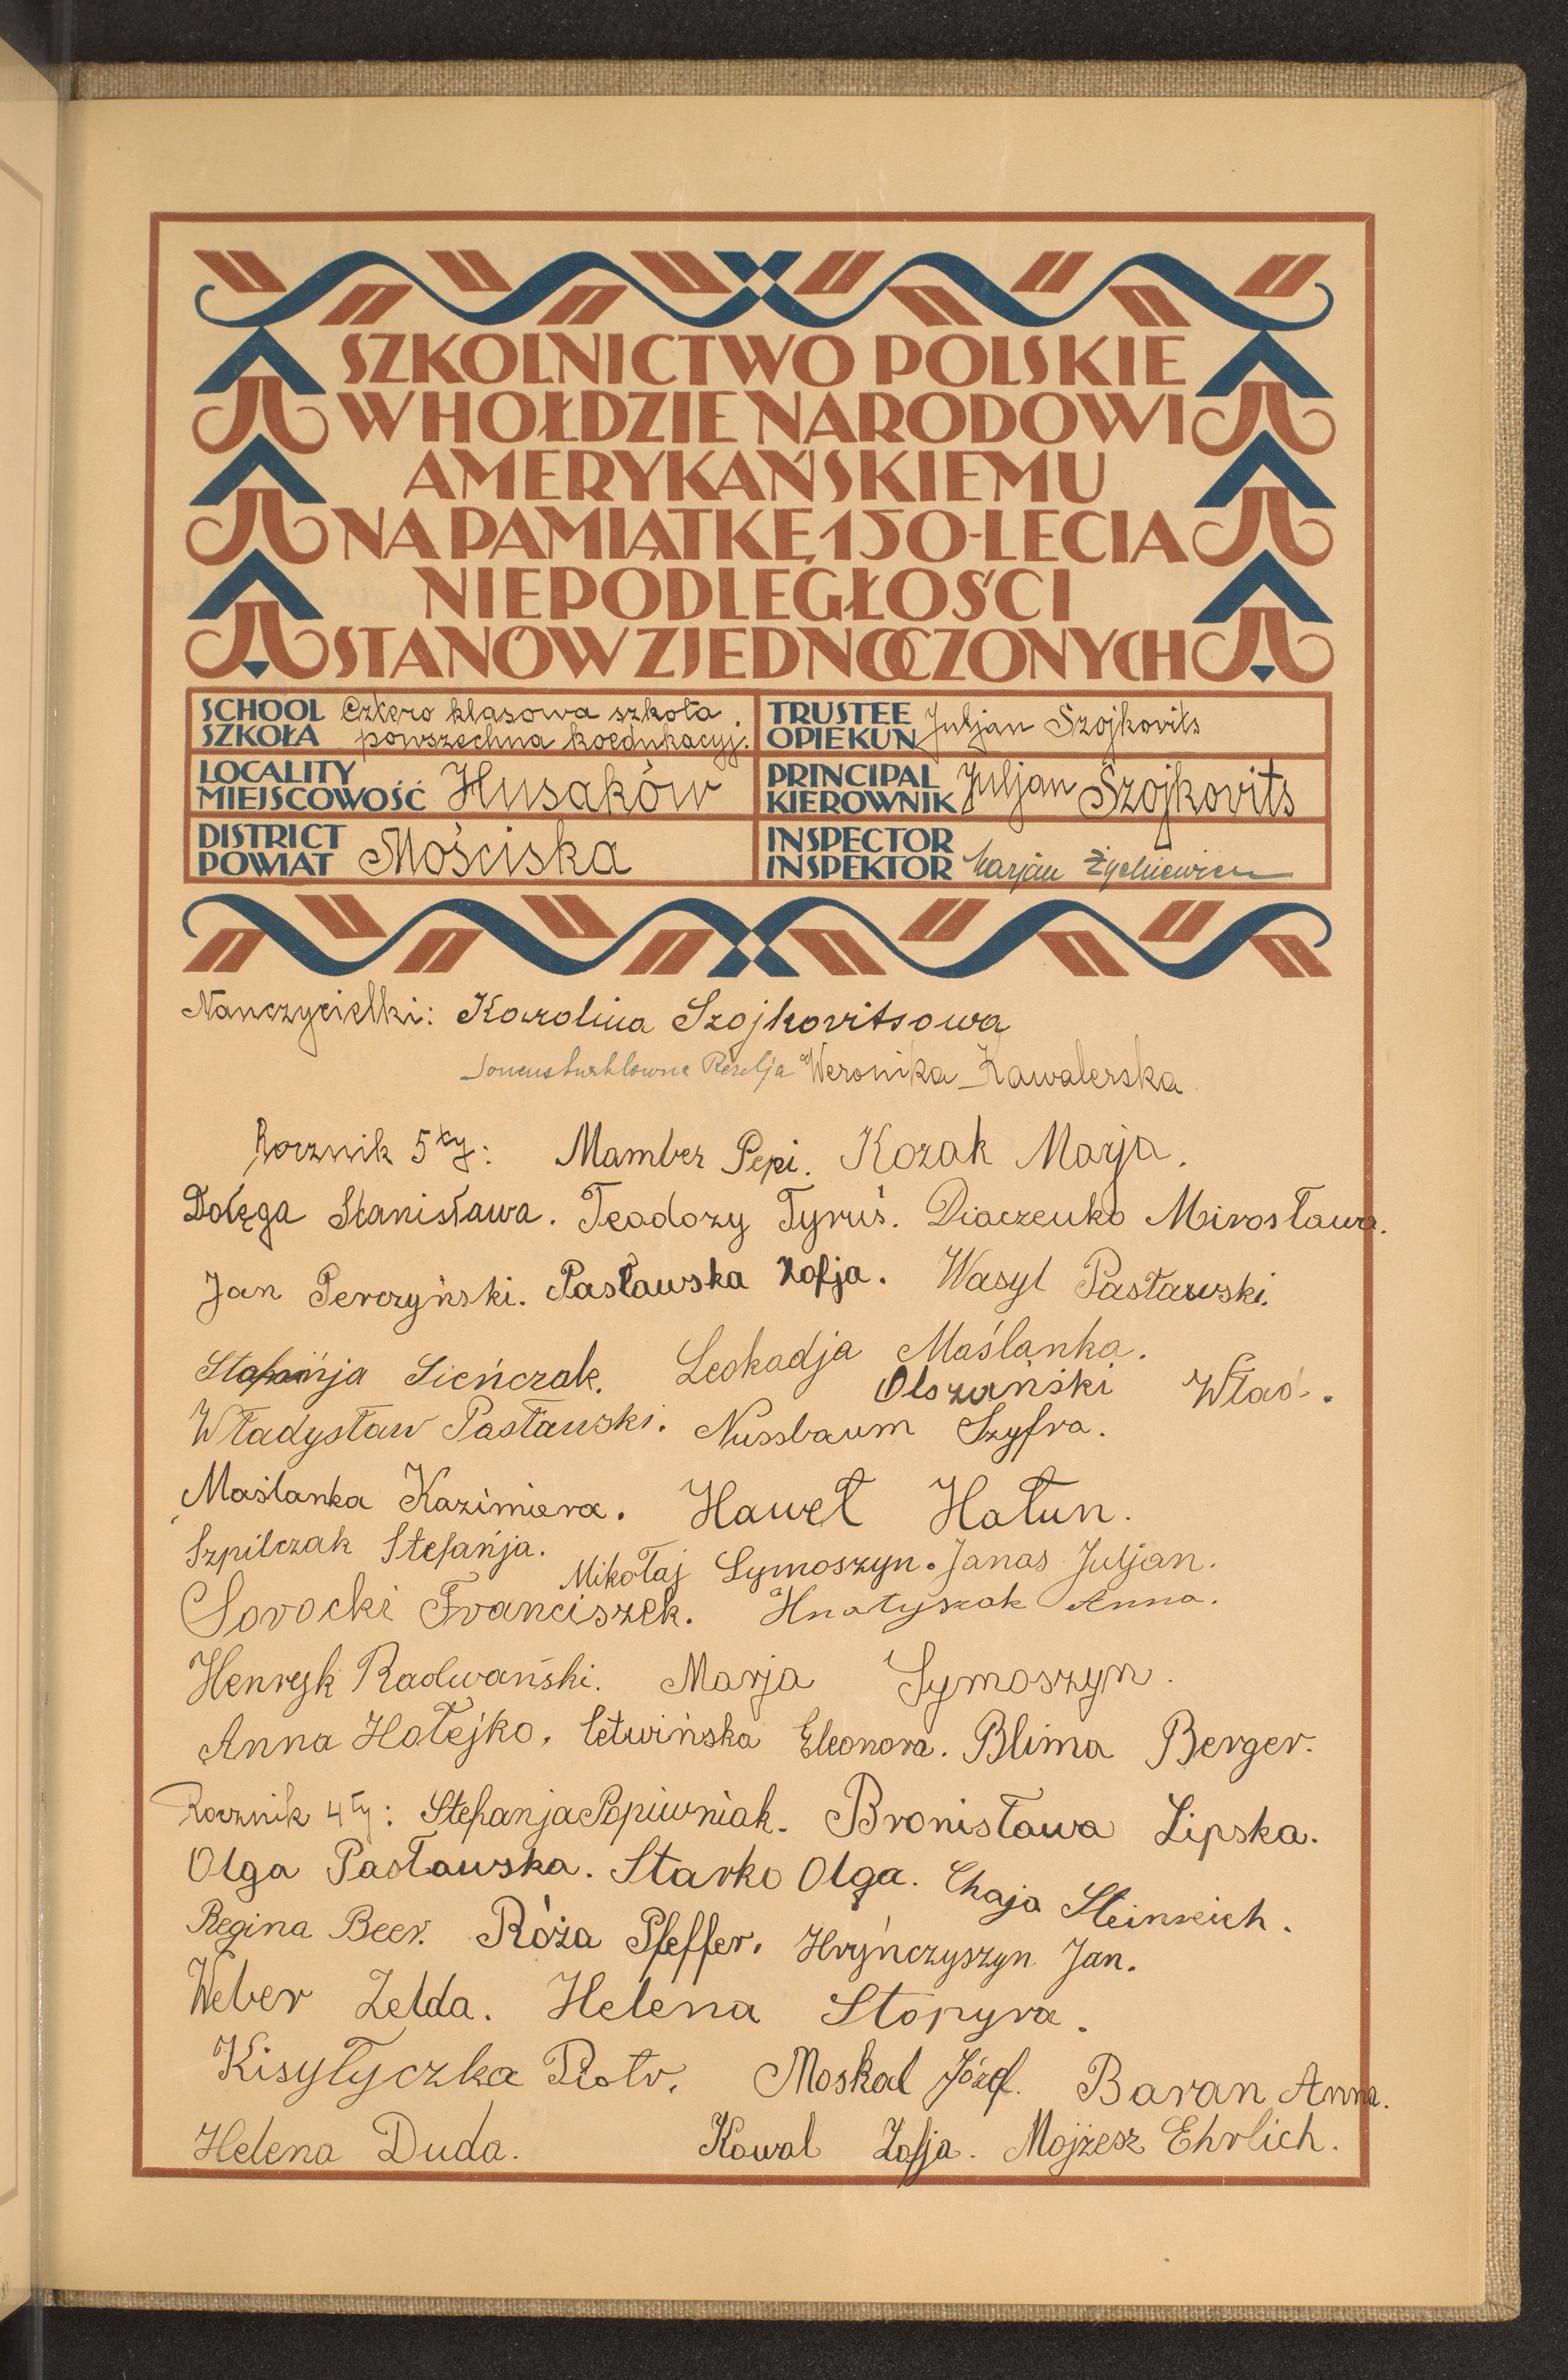 SZKOLNICTWO POLSKIE
W HOŁDZIE NARODOWI
AMERYKAŃSKIEMU
NA PAMIĄTKĘ 150-LECIA
NIEPODLEGŁOŚCI
STANÓW ZJEDNOCZONYCH
SCHOOL SZKOŁA Cztero klasowa szkoła powszechna koedukacyj.
TRUSTEE OPIEKUN Juljan Szojkovits
LOCALITY MIEJSCOWOŚĆ Husaków
PRINCIPAL KIEROWNIK Juljan Szojkovits
DISTRICT POWIAT Mościska
INSPECTOR INSPEKTOR Marjan
Nauczycielki: Karolina Szojkovitsowa
Weronika Kawalerska
Rocznik 5ty: Mamber Pepi. Kozak Marja.
Dołęga Stanisława. Teodozy Tyruś. Diaczenko Mirosława.
Jan Perczyński. Pasławska Zofja. Wasyl Pasławski.
Stefańja Sieńczak. Leokadja Maślanka.
Olszański Wład.
Władysław Pasławski. Nussbaum Szyfra.
Maślanka Kazimiera. Haweł Hałun.
Szpilczak Stefańja.
Mikołaj Symoszyn. Janas Juljan.
Sorocki Franciszek. Hnatyszak Anna.
Henryk Radwański. Marja Symoszyn.
Anna Hołejko. Letwińska Eleonora. Blima Berger.
Rocznik 4ty: Stefanja Popiwniak. Bronisława Lipska.
Olga Pasławska. Starko Olga. Chaja Steinreich.
Regina Beer. Róża Pfeffer. Hryńczyszyn Jan.
Weber Zelda. Helena Stopyra.
Kisyłyczka Piotr. Moskal Józef. Baran Anna.
Helena Duda. Kowal Zofja. Mojżesz Ehrlich.